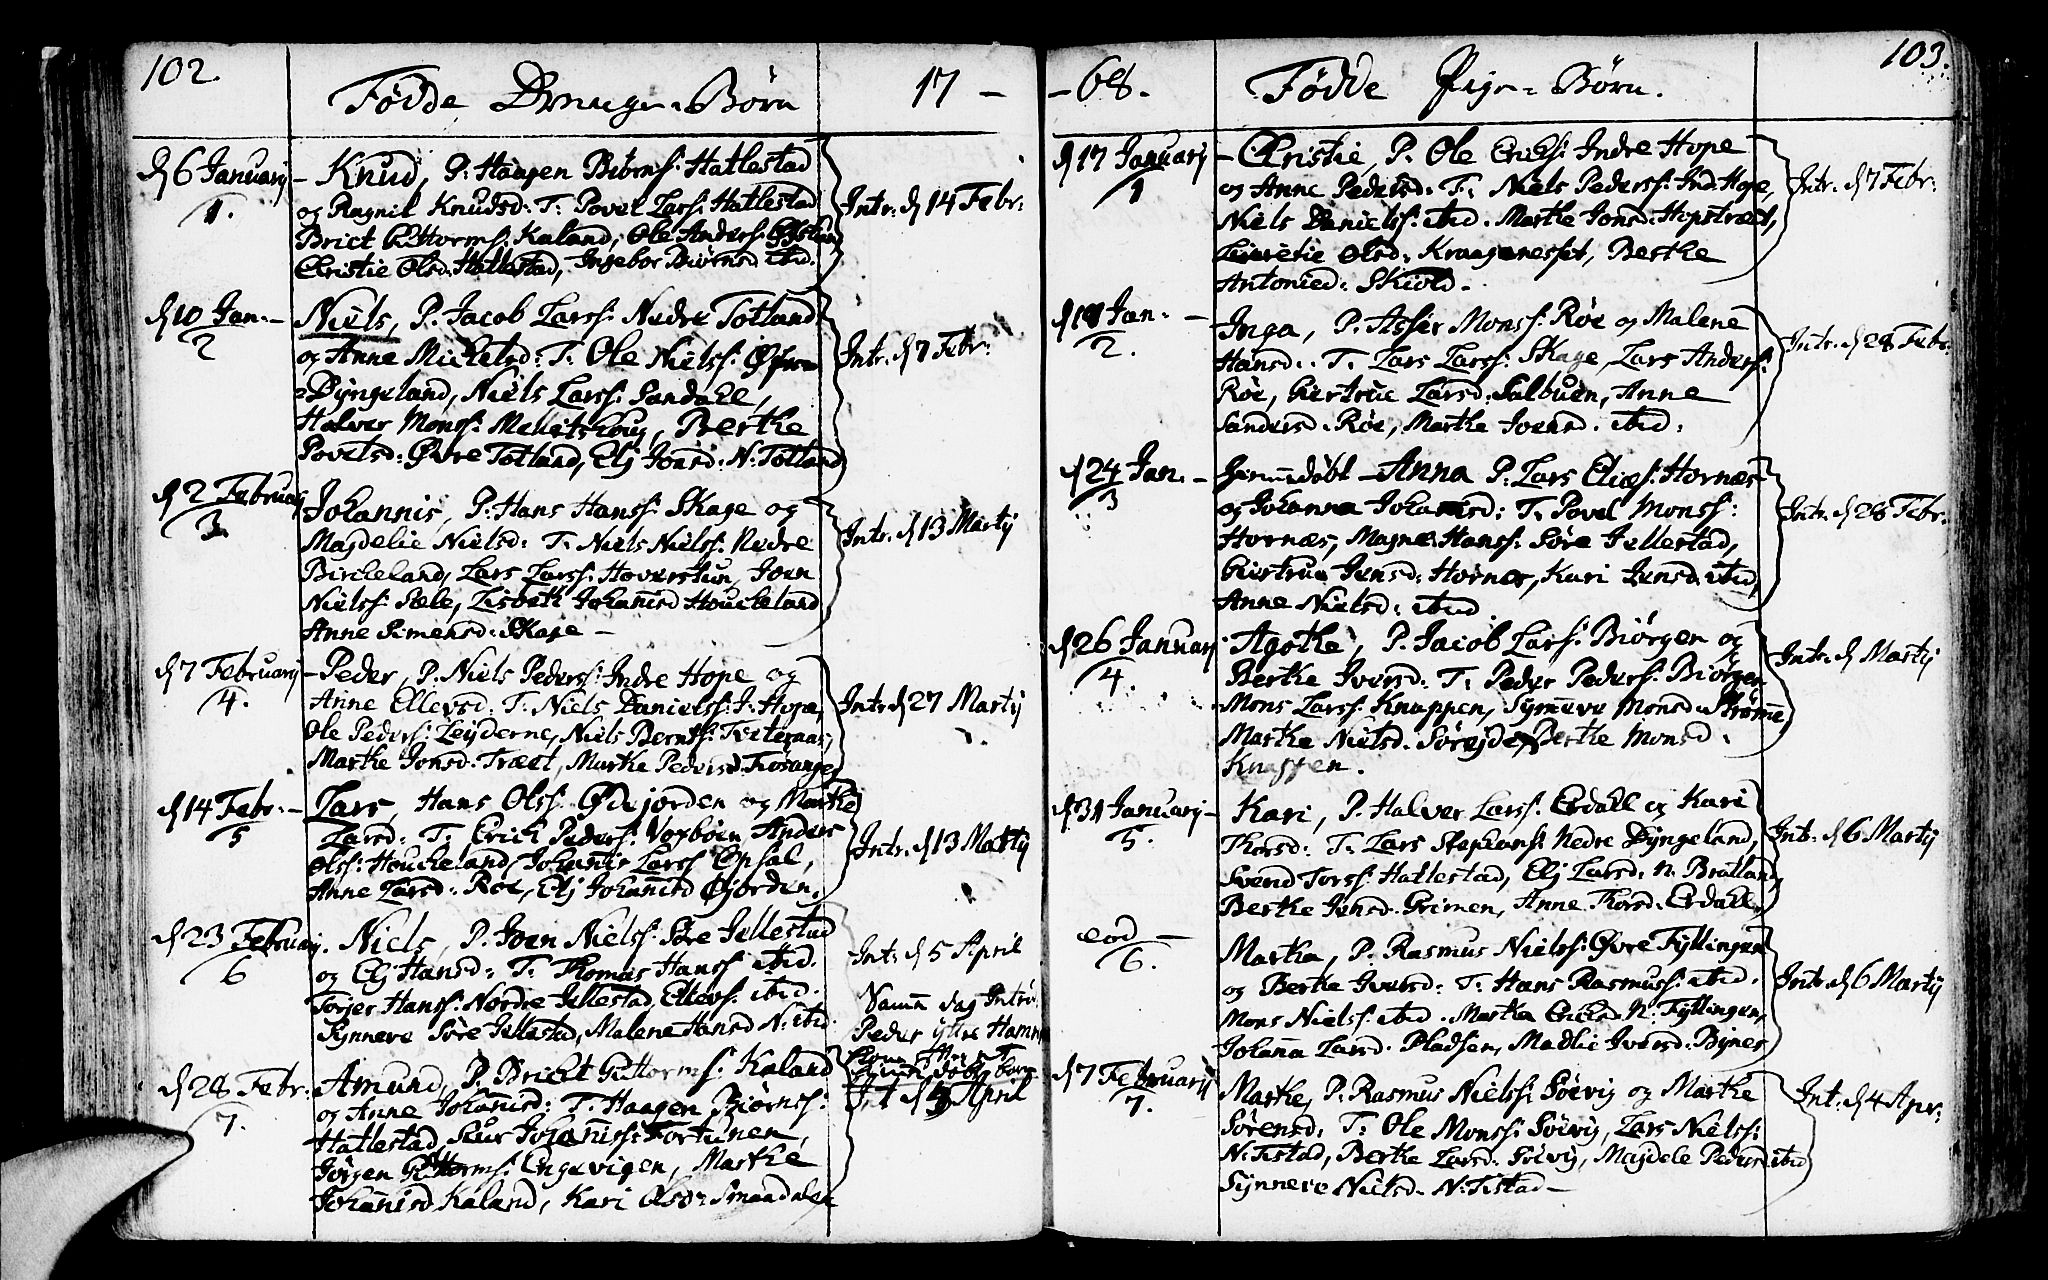 102.
Fødde Drenge-Børn
17 -
d 6 Januarij
1.
- Knud, P. Haagen Biørns: Hatlestad
og Ragnil Knudsd: T: Povel Larss: Hatlestad
Briet Guttorms: Kaland, Ole Anders:
Christie Olsd: Hatlestad, Ingebor Biørnsd ibid.
Intr: d 14 Febr:
d 10 Jan: -
2
Niels, P. Jacob Larss: Nedre Totland
og Anne Michelsd: T. Ole Nielss: Øfre
=Dyngeland, Niels Larss: Sandahl,
Halver Monss: Berthe
Povelsd: Øvre Totland, Elj Jonsd: N: Totland
Intr. d 7 Febr:
d 2 Februarij
3.
Johannis, P. Hans Hanss: Skage og
Magdelie Nielsd: T. Niels Nielss: Nedre
Bircheland, Lars Larss: Hoverstun, Joen
Nielss: Sæle, Lisbeth Johañisd Houcheland
Anne Simensd: Skage -
Intr. d 13 Martij
d 7 Februarij
4.
- Peder, P. Niels Pederss: Indre Hope og
Anne Ellevsd: T. Niels Danielss: J. Hope,
Ole Pederss: Leyderne, Niels Berntss: Tveteraas,
Marthe Jonsd: Træet, Marthe Pedersd: Tiosanger
Intr d 27 Martij
d 14 Febr: -
5
Lars, Hans Olss: Ødejorden og Marthe
Larsd: T. Erich Pederss: Voxbøen Anders
Olss: Houcheland, Johañis Larss Opsal,
Anne Larsd: Røe, Elj Johañisd Øjorden.
Intr. d 13 Martij
d 23 Februarij.
6
Niels, P. Joen Nielss: Søre Jellestad
og Elj Hansd: T. Thomas Hanss: ibid.
Torjer Hanss: Nordre Jellestad, Ellevs: ibid.
Synneve Søre Jellestad, Malene Hansd N: ibid.
Intr d 5 April
Sam̃ dag Intr:
Peder ytre Hamre
d 28 Febr:
7.
Amund, P. Briet Guttorms: Kaland
og Anne Johañisd: T. Haagen Biørnss:
Hatlestad, Siur Johañiss: Fortunen,
Jørgen Guttorms: Engevigen, Marthe
Johañisd Kaland, Kari Olsd: Smaadalen
Int d 5 April
103.
- 68.
Fødde Pige-Børn.
d 17 Januarij
1
- Christie, P. Ole Erichs: Indre Hope
og Anne Pedersd: T: Niels Pederss: Ind: Hope,
Niels Danielss: ibid. Marthe Jonsd: Hopstræet,
Olsd: Kraagenesset, Berthe
Antonied: Skiold.
Intr. d 7 Febr:
d 19 Jan: -
2.
Inga, P. Asser Monss: Røe og Malene
Hansd: T. Lars Larss: Skage, Lars Anderss:
Røe, Giertrue Larsd: Salbuen, Anne
Sandersd: Røe, Marthe Joensd. ibid:
Intr. d 28 Febr:
d 24 Jan. -
3
hjem̃edøbt - Anna P. Lars Elias: Hornæs
og Johanna Johansd: T. Povel Monss:
Hornæs, Magne Hanss: Søre Jellestad,
Giertrue Jensd: Hornes, Kari Jensd. ibid,
Anne Nielsd: ibid
Intr. d 28 Febr.
d 26 Januarij
4.
Agothe, P. Jacob Larss: Biørgen og
Berthe Iversd: T. Peder Pederss: Biørgen
Mons Larss: Knappen, Sym̃eve Monsd: Strøm̃e
Marthe Nielsd. Sørejde, Berthe Monsd:
Knappen.
Intr. d Martij
d 31 Januarij -
5.
Kari, P. Halver Larss: Erdahl og Kari
Thorsd: T. Lars Stephans: Nedre Dyngeland,
Svend Torss: Hatlestad, Elj Larsd: N. Bratland,
Berthe Jensd: Grimen, Anne Thorsd: Erdahl
Intr. d 6 Martij
eod -
6.
Martha, P. Rasmus Nielss: Øvre Fyllingen
og Berthe Iversd: T. Hans Rasmuss: ibid.
Mons Nielss: ibid. Martha Erichsd. N: Fyllingen,
Johan̄a Larsd. Pladsen, Madlie Iversd: Bønes
Intr. d 6 Martij
d 7 Februarij
7.
Marthe, P. Rasmus Nielss: Søevig og Marthe
Sørensd: T. Ole Monss: Søevig, Lars Nielss:
N: Tistad, Berthe Larsd: Søevig, Magdele Pedersd ibid
Synneve Nielsd. N: Tistad -
Int: d 4 Apr: